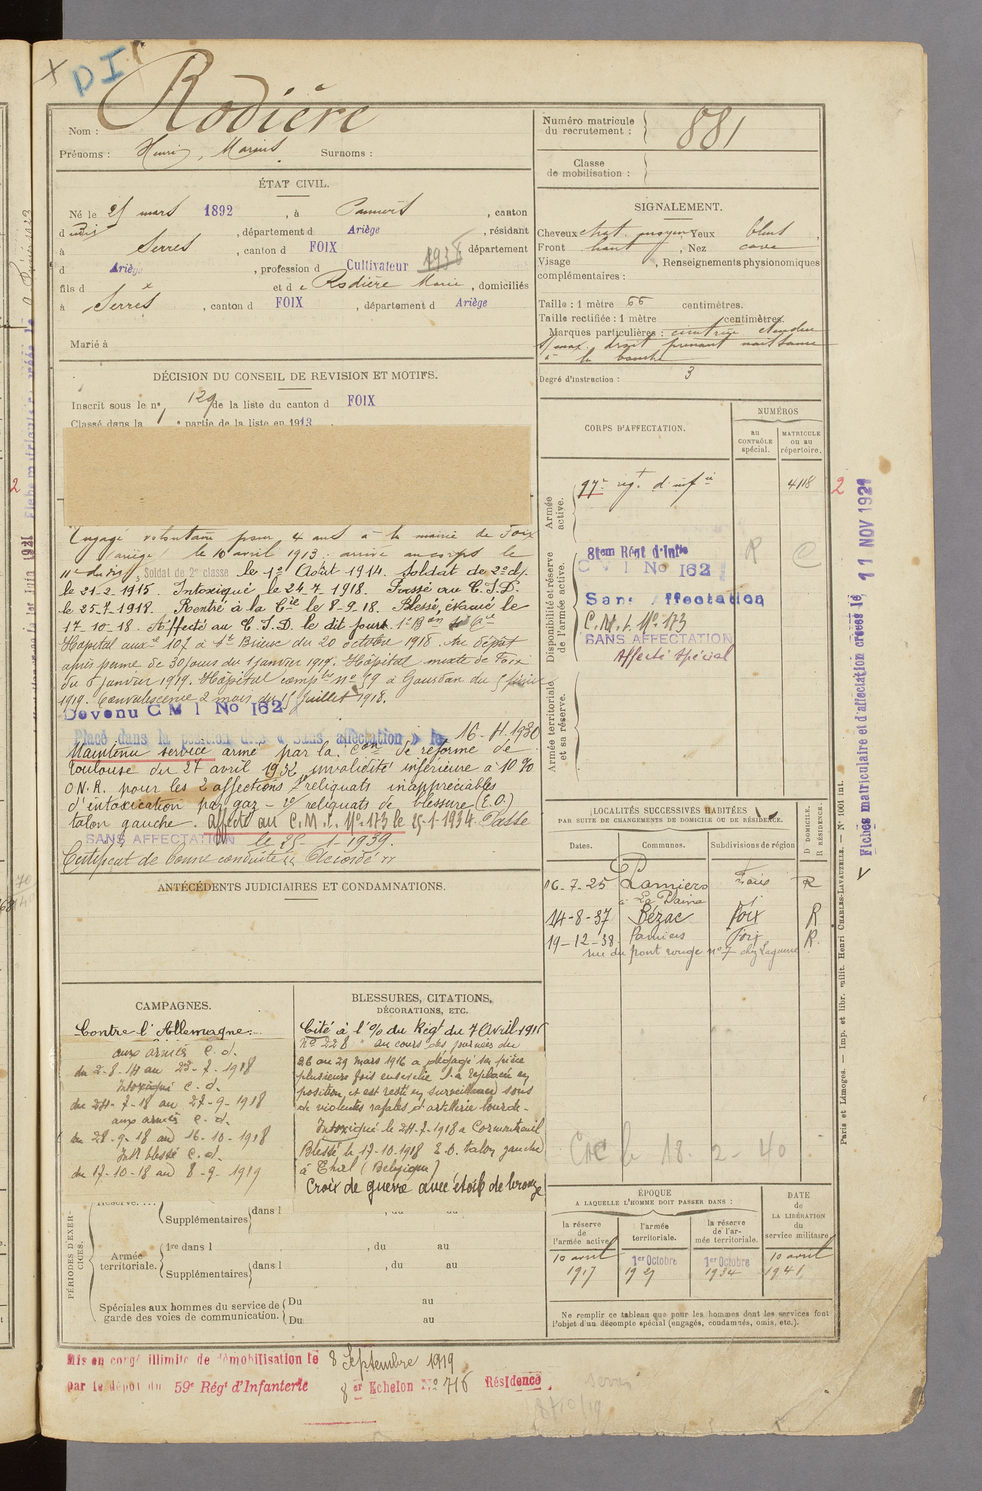 DI
Rodière
Nom :
Prénoms : Henri, Marius. Surnoms :
Numéro matricule du recrutement : 881
Classe de mobilisation :
ÉTAT CIVIL.
Né le 25 mars 1892, à Pamiers, canton
dudis, département d Ariège, résidant
à Serres, canton d FOIX, département
d Ariège, profession d Cultivateur 1938
fils d x et de Rodière Marie, domiciliés
à Serres, canton d FOIX, département d Ariège
Marié à
SIGNALEMENT.
Cheveux chat. moyen Yeux bleus
Front haut, Nez cave
Visage , Renseignements physionomiques
complémentaires :
Taille : 1 mètre 66 centimètres.
Taille rectifiée : 1 mètre centimètres.
Marques particulières : cicatrice étendue
s/ max. droit prenant naissance
à la bouche
Degré d'instruction : 3
DÉCISION DU CONSEIL DE REVISION ET MOTIFS.
Inscrit sous le no 129 de la liste du canton d FOIX
Classé dans la e partie de la liste en 1913
Engagé volontaire pour 4 ans à la mairie de Foix
Ariège le 10 avril 1913. arrivé au corps le
11 du dit, Soldat de 2e classe le 1er Août 1914. Soldat de 2e cl.
le 21-2-1915. Intoxiqué le 24-7-1918. Passé au C.I.D.
le 25-7-1918. Rentré à la Cie le 8-9-18. Blessé, évacué le
17-10-18. Affecté au C.I.D. le dit jour. 1er Bon Cie
Hôpital auxre 107 à St Brieuc du 20 octobre 1918. Au dépôt
après perme de 30 jours du 1 janvier 1919. Hôpital mixte de Foix
du 8 janvier 1919. Hôpital complre no 79 à Gourdan du 5
1919. Convalescence 2 mois du 15 juillet 1918.
Devenu C M I No 162
Placé dans la position dite « Sans affectation » le 16-4-1930
Maintenu service armé par la Con de réforme de
Toulouse du 27 avril 1932, invalidité inférieure à 10 %
O.N.R. pour les 2 affections 1° reliquats inappréciables
d'intoxication par gaz - 2° reliquats de blessure (E.O.)
talon gauche. Affecté au C.M.I. No 173 le 25-1-1934. Passé
SANS AFFECTATION le 25-1-1939.
Certificat de bonne conduite « Accordé »
CORPS D'AFFECTATION.
NUMÉROS
AU CONTRÔLE spécial.
MATRICULE ou au répertoire.
Armée active.
97e rég.t d'inf.ie 4118
2
Disponibilité et réserve de l'armée active.
81em Régt d'Infie
C M I No 162
Sans Affectation
C.M.I. No 173
SANS AFFECTATION
Affecté Spécial
R C
Armée territoriale et sa réserve.
ANTÉCÉDENTS JUDICIAIRES ET CONDAMNATIONS.
LOCALITÉS SUCCESSIVES HABITÉES
PAR SUITE DE CHANGEMENTS DE DOMICILE OU DE RÉSIDENCE.
Dates. Communes. Subdivisions de région D DOMICILE. R RÉSIDENCE.
06-7-25 Pamiers Foix R
à La Plaine
14-8-37 Bézac Foix R
19-12-38 Pamiers Foix R.
rue du pont rouge no 7 chez Laguerre
18-2-40
CAMPAGNES.
Contre l'Allemagne :
aux armées c. d.
du 2-8-14 au 23-7-1918
Intoxiqué c. d.
du 24-7-18 au 27-9-1918
aux armées c. d.
du 28-9-18 au 16-10-1918
Intr blessé c. d.
du 17-10-18 au 8-9-1919
BLESSURES, CITATIONS, DÉCORATIONS, ETC.
Cité à l'o/ du Régt du 7 Avril 1916
No 228 " au cours des journées du
26 au 29 mars 1916 a dégagé sa pièce
plusieurs fois ensevelie l'a replacée en
position et est resté en surveillance sous
de violentes rafales d'artillerie lourde.
Intoxiqué le 24-7-1918 à Cormontreuil
Blessé le 17-10-1918 E.O. talon gauche
à Thiel (Belgique)
Croix de guerre avec étoile de bronze
PÉRIODES D'EXERCICES.
Réserve. . . .
Supplémentaires dans l , du au
Armée territoriale.
1re dans l , du au
Supplémentaires dans l , du au
Spéciales aux hommes du service de garde des voies de communication.
Du au
Du au
ÉPOQUE
A LAQUELLE L'HOMME DOIT PASSER DANS :
la réserve de l'armée active
l'armée territoriale.
la réserve de l'armée territoriale.
DATE DE LA LIBÉRATION du service militaire.
10 avril 1917
1er Octobre 1927
1er Octobre 1934
10 avril 1941
Ne remplir ce tableau que pour les hommes dont les services font
l'objet d'un décompte spécial (engagés, condamnés, omis, etc.).
Mis en congé illimité de démobilisation le 8 Septembre 1919
par le dépôt du 59e Régt d'Infanterie 8er Echelon No 716 Résidence
Serres
8/10/19
Fiches matriculaire et d'affectation créées le 11 NOV 1921
Paris et Limoges. — Imp. et libr. milit. Henri CHARLES-LAVAUZELLE. — No 1001 int.